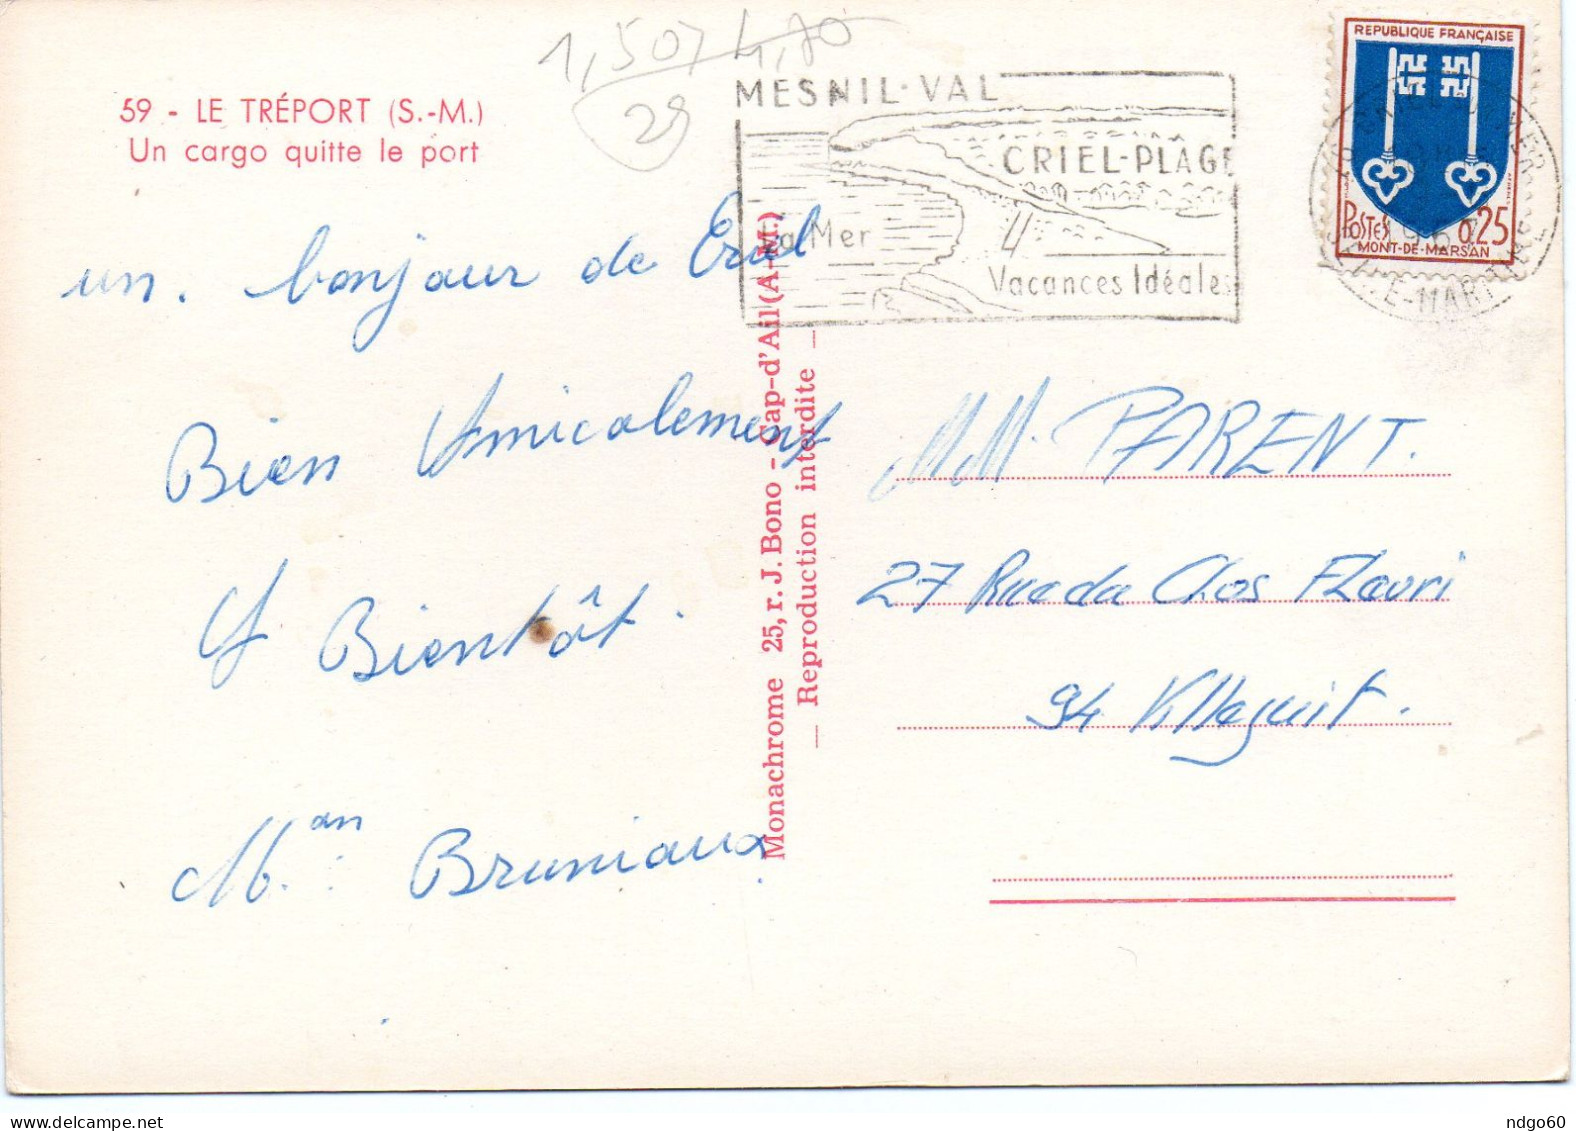 1,50
29
59 - LE TRÉPORT (S.-M.)
Un cargo quitte le port
MESNIL-VAL
CRIEL-PLAGE
La Mer
Vacances Idéales
REPUBLIQUE FRANÇAISE
POSTES 0,25
MONT-DE-MARSAN
E-MARITIME
un. bonjour de Criel
Bien Amicalement
et Bientôt.
Man. Bruniaux
Monachrome 25, r. J. Bono - Cap-d'Ail (A-M.)
— Reproduction interdite —
MM. PARENT.
27 Rue da Clos Fleuri
94 Villejuif.
ndgo60